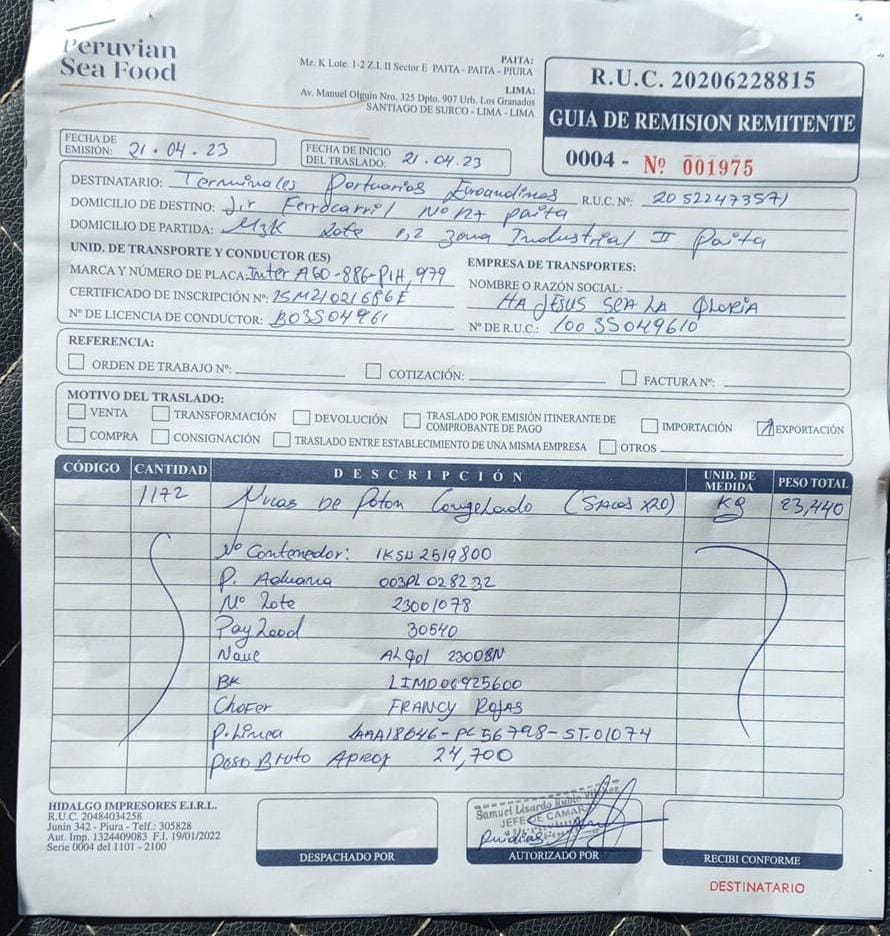 Peruvian
Sea Food
PAITA:
Mz. K Lote. 1-2 Z.I. II Sector E PAITA - PAITA - PIURA
LIMA:
Av. Manuel Olguin Nro. 325 Dpto. 907 Urb. Los Granados
SANTIAGO DE SURCO - LIMA - LIMA
R.U.C. 20206228815
GUIA DE REMISION REMITENTE
0004 - Nº 001975
FECHA DE EMISIÓN: 21.04.23
FECHA DE INICIO DEL TRASLADO: 21.04.23
DESTINATARIO: Terminales Portuarios Euroandinos R.U.C. Nº: 20522473571
DOMICILIO DE DESTINO: Jir Ferrocarril Nº 127 paita
DOMICILIO DE PARTIDA: Mzk Lote 1,2 Zona Industrial II Paita
UNID. DE TRANSPORTE Y CONDUCTOR (ES)
MARCA Y NÚMERO DE PLACA: Inter A60-886-P1H, 979
CERTIFICADO DE INSCRIPCIÓN Nº: 15M21021686E
Nº DE LICENCIA DE CONDUCTOR: B03504961
EMPRESA DE TRANSPORTES:
NOMBRE O RAZÓN SOCIAL:
HA JESUS SEA LA GLORIA
Nº DE R.U.C.: 10035049610
REFERENCIA:
ORDEN DE TRABAJO Nº: COTIZACIÓN: FACTURA Nº:
MOTIVO DEL TRASLADO:
VENTA TRANSFORMACIÓN DEVOLUCIÓN TRASLADO POR EMISIÓN ITINERANTE DE COMPROBANTE DE PAGO IMPORTACIÓN EXPORTACIÓN
COMPRA CONSIGNACIÓN TRASLADO ENTRE ESTABLECIMIENTO DE UNA MISMA EMPRESA OTROS
CÓDIGO CANTIDAD DESCRIPCIÓN UNID. DE MEDIDA PESO TOTAL
1172 Nucas De Poton Congelado (Sacos x20) Kg 23,440
Nº Contenedor: IKSU 2519800
P. Aduana 003PL 028232
Nº Lote 23001078
Pay Load 30540
Nave ALGol 23008N
BK LIMD06925600
Chofer FRANCY ROJAS
P. Linea LAAA18646-PC56798-ST.01074
Peso Bruto Aprox 24,700
HIDALGO IMPRESORES E.I.R.L.
R.U.C. 20484034258
Junin 342 - Piura - Telf.: 305828
Aut. Imp. 1324409083 F.I. 19/01/2022
Serie 0004 del 1101 - 2100
DESPACHADO POR
Samuel Lisardo Rubio
JEFE DE CAMARA
AUTORIZADO POR
RECIBI CONFORME
DESTINATARIO